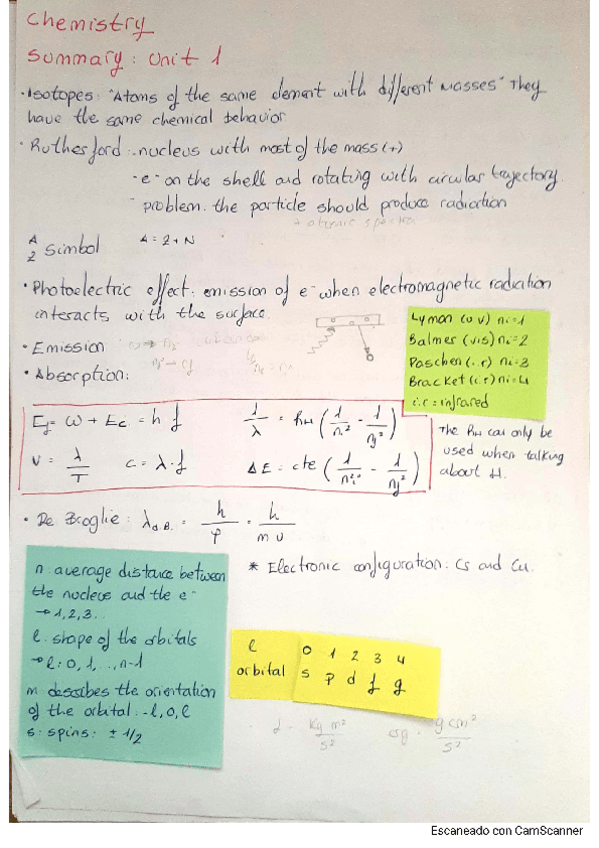 Chemistry
Summary: Unit 1
· Isotopes: "Atoms of the same element with different masses" They
have the same chemical behavior
· Rutherford: - nucleus with most of the mass (+)
- e⁻ on the shell and rotating with circular trajectory.
- problem: the particle should produce radiation
+ atomic spectra
A
Z Simbol A = Z + N
· Photoelectric effect: emission of e⁻ when electromagnetic radiation
interacts with the surface.
· Emission
· Absorption:
Lyman (u v) ni=1
Balmer (vis) ni=2
Paschen (i.r) ni=3
Bracket (i.r) ni=4
i.r = infrared
Ef = W + Ec = h f 1/λ = RH (1/ni² - 1/nj²)
v = λ/T c = λ·f ΔE = cte (1/ni² - 1/nj²)
The RH can only be
used when talking
about H.
· De Broglie: λd.B. = h/p = h/m v
* Electronic configuration: Cs and Cu.
n: average distance between
the nucleus and the e⁻
→ 1, 2, 3...
l: shape of the orbitals
→ l: 0, 1, ..., n-1
m describes the orientation
of the orbital: -l, 0, l
s: spins: ± 1/2
l 0 1 2 3 4
orbital s p d f g
Kg m²/s² g cm²/s²
Escaneado con CamScanner